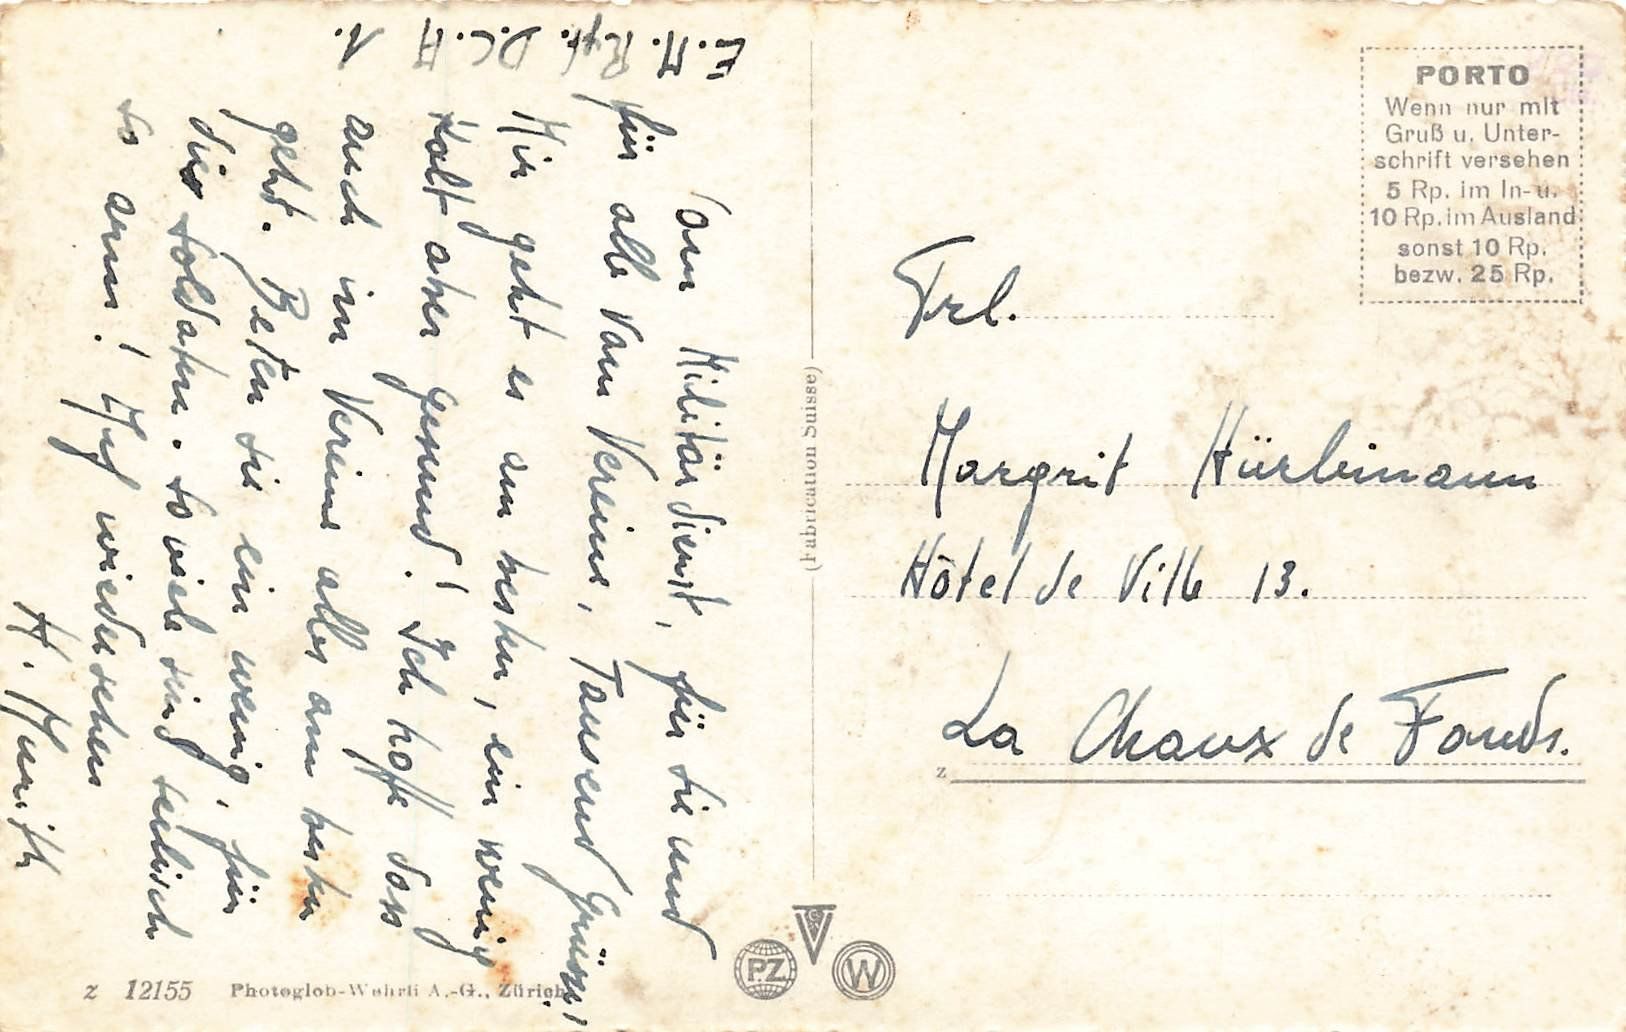 E. M. Rgt. D.C.A 1.
Vom Militärdienst, für sie und
für alle vom Vereine, Tausend Grüsse!
Mir geht es am besten, ein wenig
kalt aber gesund! Ich hoffe dass
auch im Vereine alles am besten
geht. Beten sie ein wenig, für
die soldaten. so viele sind seelisch
so arm! Auf wiedersehen
(Fabrication Suisse)
PORTO
Wenn nur mit
Gruß u. Unter-
schrift versehen
5 Rp. im In- u.
10 Rp. im Ausland
sonst 10 Rp.
bezw. 25 Rp.
Frl.
Margrit Hürlimann
Hôtel de Ville 13.
La Chaux de Fonds.
z
PZ
W
z 12155 Photoglob-Wehrli A.-G., Zürich